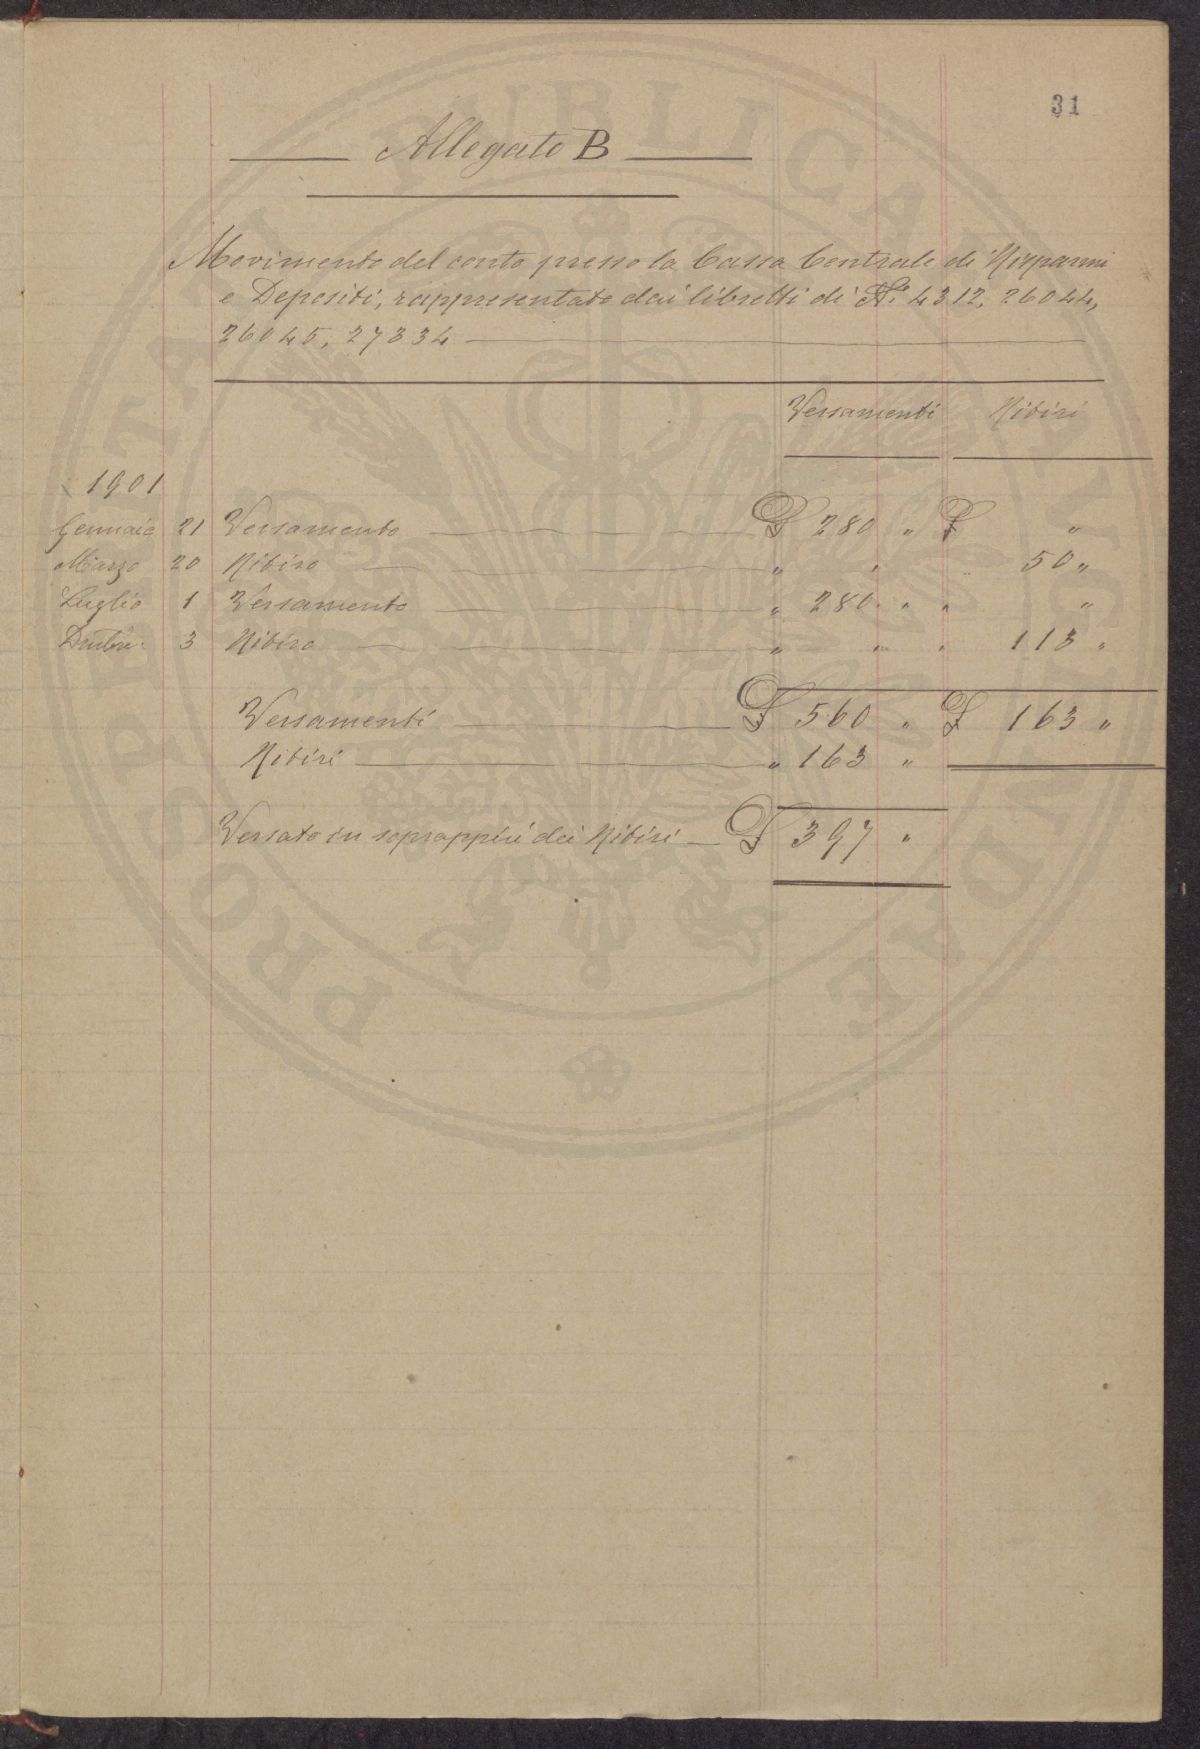 31
Allegato B
Movimento del conto presso la Cassa Centrale di Risparmi
e Depositi, rappresentato dai libretti di Ni 4312, 26044,
26045, 27834
Versamenti Ritiri
1901
Gennaio 21 Versamento £ 280 " £ "
Marzo 20 Ritiro " " 50 "
Luglio 1 Versamento " 280 " " "
3 Ritiro " " " 113 "
Versamenti £ 560 " £ 163 "
Ritiri " 163 "
Versato in soprappiù dei Ritiri £ 397 "